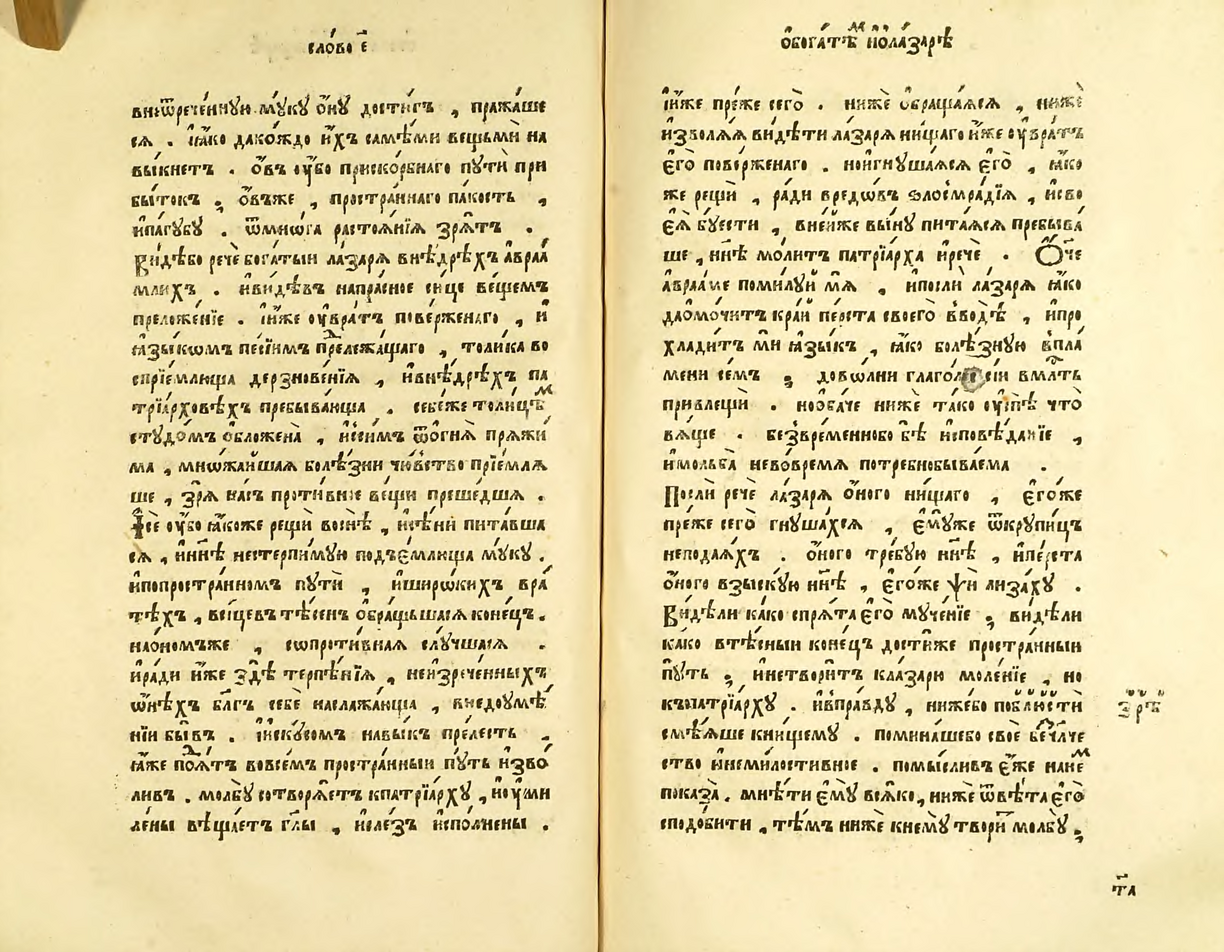 сло́во є҃
внѡ҆реченнꙋю мꙋ́кꙋ ѻ҆́нꙋ дости́гъ , пра́жаше
сѧ . ꙗ҆́ко дако́ждо и҆́хъ самѣ́ми вещьмѝ на
вы́кнетъ . ѻ҆́въ ᲂу҆́бо приско́рбнаго пꙋтѝ при
бы́токъ , ѻ҆́въже , простра́ннаго па́кость ,
и҆па́гꙋбꙋ . ѿмнѡ́га растоѧ́нїѧ зрѧ́тъ .
Ви́дѣбо речѐ бога́тыи ла́зарѧ внѣ́дрѣхъ а҆враа́
млихъ . и҆ви́дѣвъ напра́сное си́це ве́щемъ
преложе́нїе . і҆и́же оу҆вра́тъ пове́рженаго , и҆
ꙗ҆зы́кѡмъ пе́сїимъ прележа́щаго , толи́ка во
спрїе́млюща дерзнове́нїѧ , и҆внѣ́дрѣхъ па
трїа́рховѣхъ пребыва́юща . себе́же толи́цѣм
стꙋдо́мъ ѻ҆бложе́на , и҆си́мъ ѿѻгнѧ̀ пражи́
ма , мно́жаишаѧ болѣ́зни чю́вство прїе́млѧ
ше , зрѧ̀ на́съ проти́вние ве́щи преше́дшѧ .
І҆сѐ оу҆́бо ꙗ҆́коже рещѝ во́снѣ , и҆сѣ́ни пита́вша
сѧ , и҆ни́нѣ нестерпи́мꙋю подъе́млюща мꙋ́кꙋ .
и҆попростра́нномъ пꙋтѝ , и҆широ́кихъ вра
тѣ́хъ , ве́щевъ тѣ́сенъ ѻ҆бра́щьшасѧ коне́цъ .
нао́номъже , сопроти́внаѧ слꙋ́чшасѧ .
и҆ра́ди и҆́же здѣ̀ терпѣ́нїѧ , неизрече́нныхъ
ѻ҆нѣ́хъ бл҃гъ себѐ наслажа́юща , внедоꙋмѣ́
нїи бы́въ . и҆и҆скꙋ́сомъ навы́къ пре́лесть ,
ꙗ҆́же поѧ́тъ во́всемъ простра́нныи пꙋ́ть и҆зво́
ливъ . мо́лбꙋ сотворѧ́етъ кпатрїа́рхꙋ , и҆оу҆ми
ле́ны вѣща́етъ гл҃ы , и҆сле́зъ и҆спо́лнены .
ѻ҆бога́тѣмъ и҆ѻла́зарѣ
і҆и́же пре́же сегѡ̀ . нижѐ ѻ҆браща́ѧсѧ , нижѐ
и҆зволѧ́ѧ ви́дѣти ла́зарѧ ни́щаго и҆́же оу҆вра́тъ
є҆гѡ̀ пове́рженаго . нои҆гнꙋша́ѧсѧ є҆гѡ̀ , ꙗ҆́ко
же рещѝ , ра́ди вре́довъ ѕлосмра́дїѧ , и҆сво
єѧ̀ бꙋ́ести , вне́иже вы́нꙋ пита́ѧсѧ пребыва́
ше , ни́нѣ мо́литъ патрїа́рха и҆речѐ . Ѻ҆́че
а҆враа́ме поми́лꙋи мѧ̀ , и҆послѝ ла́зарѧ ꙗ҆́ко
даомочи́тъ кра́и пе́рста своегѡ̀ вводѣ̀ , и҆про
хлади́тъ ми ꙗ҆зы́къ , ꙗ҆́ко болѣ́знꙋю впла
мени се́мъ , дово́лни глаго́ли сїи вмл҃ть
привлещѝ . нооба́че нижѐ та́ко оу҆спѣ̀ что̀
вѧ́ще . безвре́меннобо бѣ̀ и҆сповѣ́данїе ,
и҆мольба̀ невовре́мѧ потре́бнобыва́ема .
Послѝ речѐ ла́зарѧ ѻ҆́ного ни́щаго , є҆го́же
пре́же сегѡ̀ гнꙋша́хсѧ , є҆мꙋ́же ѿкрꙋпи́цъ
неподаѧ́хъ . ѻ҆́ного тре́бꙋю ни́нѣ , и҆пе́рста
ѻ҆́ного взы́скꙋю ни́нѣ , є҆го́же ѱѝ лиза́хꙋ .
Ви́дѣли ка́ко спрѧ́та є҆гѡ̀ мꙋче́нїе , ви́дѣли
ка́ко втѣ́сныи коне́цъ дости́же простра́нныи
пꙋ́ть , и҆нетвори́тъ кла́зарю моле́нїе , но
къпатрїа́рхꙋ . и҆впра́вдꙋ , ни́жебо побли́сти
смѣ́ѧше кни́щемꙋ . помина́шебо своѐ бечл҃че
ство и҆неми́лостивное . помы́сливъ є҆́же нане́м
показа̀ . мнѣ́ти є҆мꙋ̀ всѧ́ко, нижѐ ѿвѣ́та є҆гѡ̀
сподо́бити , тѣ́мъ нижѐ кнемꙋ̀ твори́ мо́лбꙋ ,
зрѣ̀
та